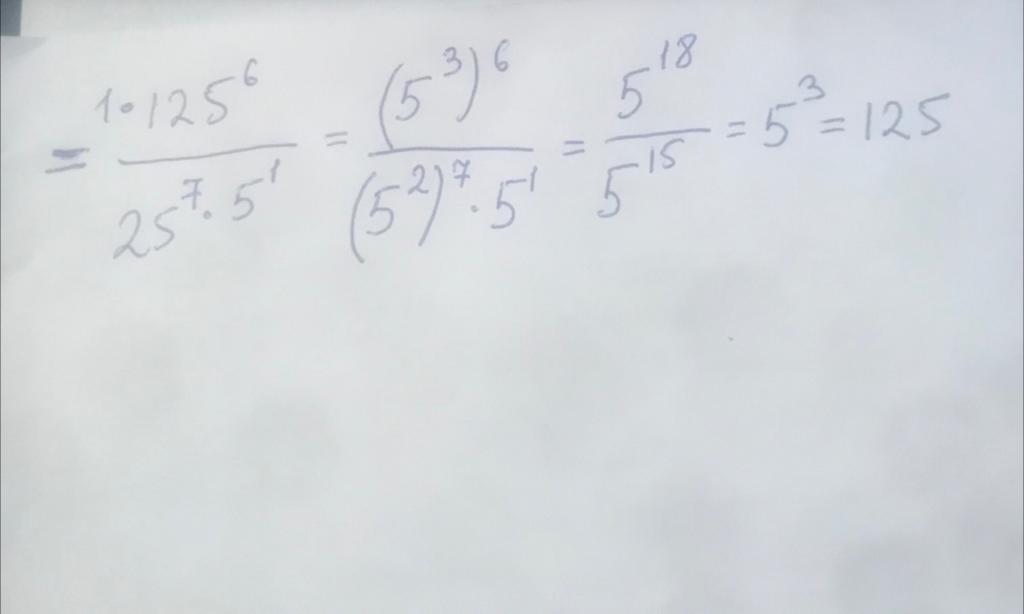 = \frac{1 \cdot 125^6}{25^7 \cdot 5^1} = \frac{(5^3)^6}{(5^2)^7 \cdot 5^1} = \frac{5^{18}}{5^{15}} = 5^3 = 125